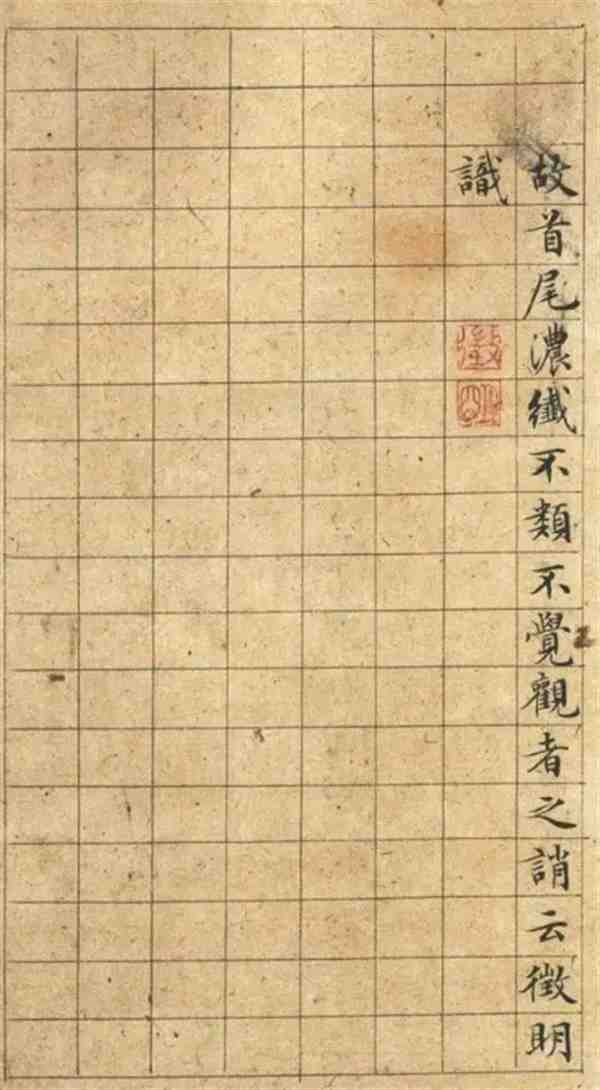 故首尾濃纖不類不覺觀者之誚云徵明
識
徵明